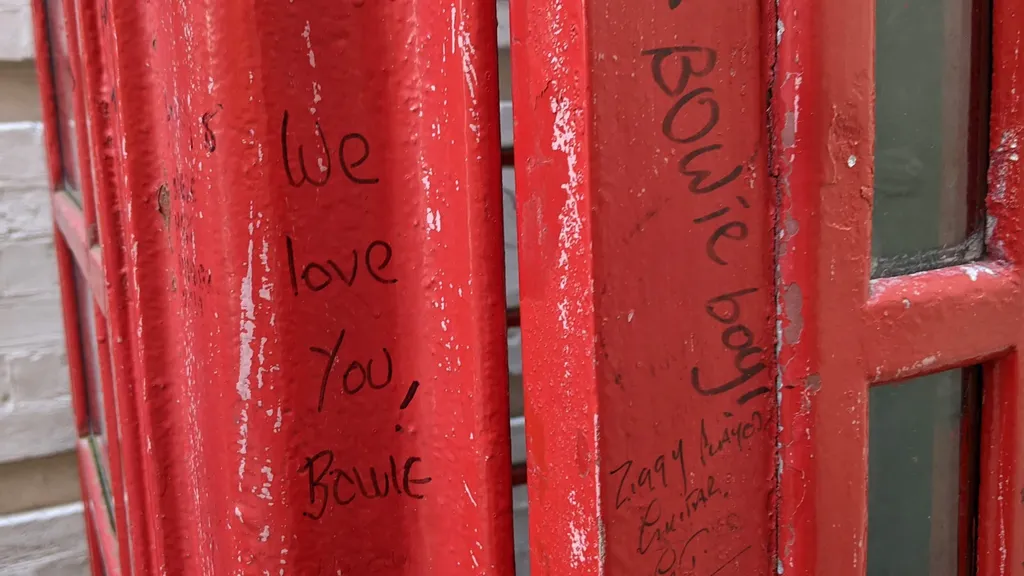 We
love
You,
Bowie
BOWie boy!
Ziggy PLAYED
GUITAR.